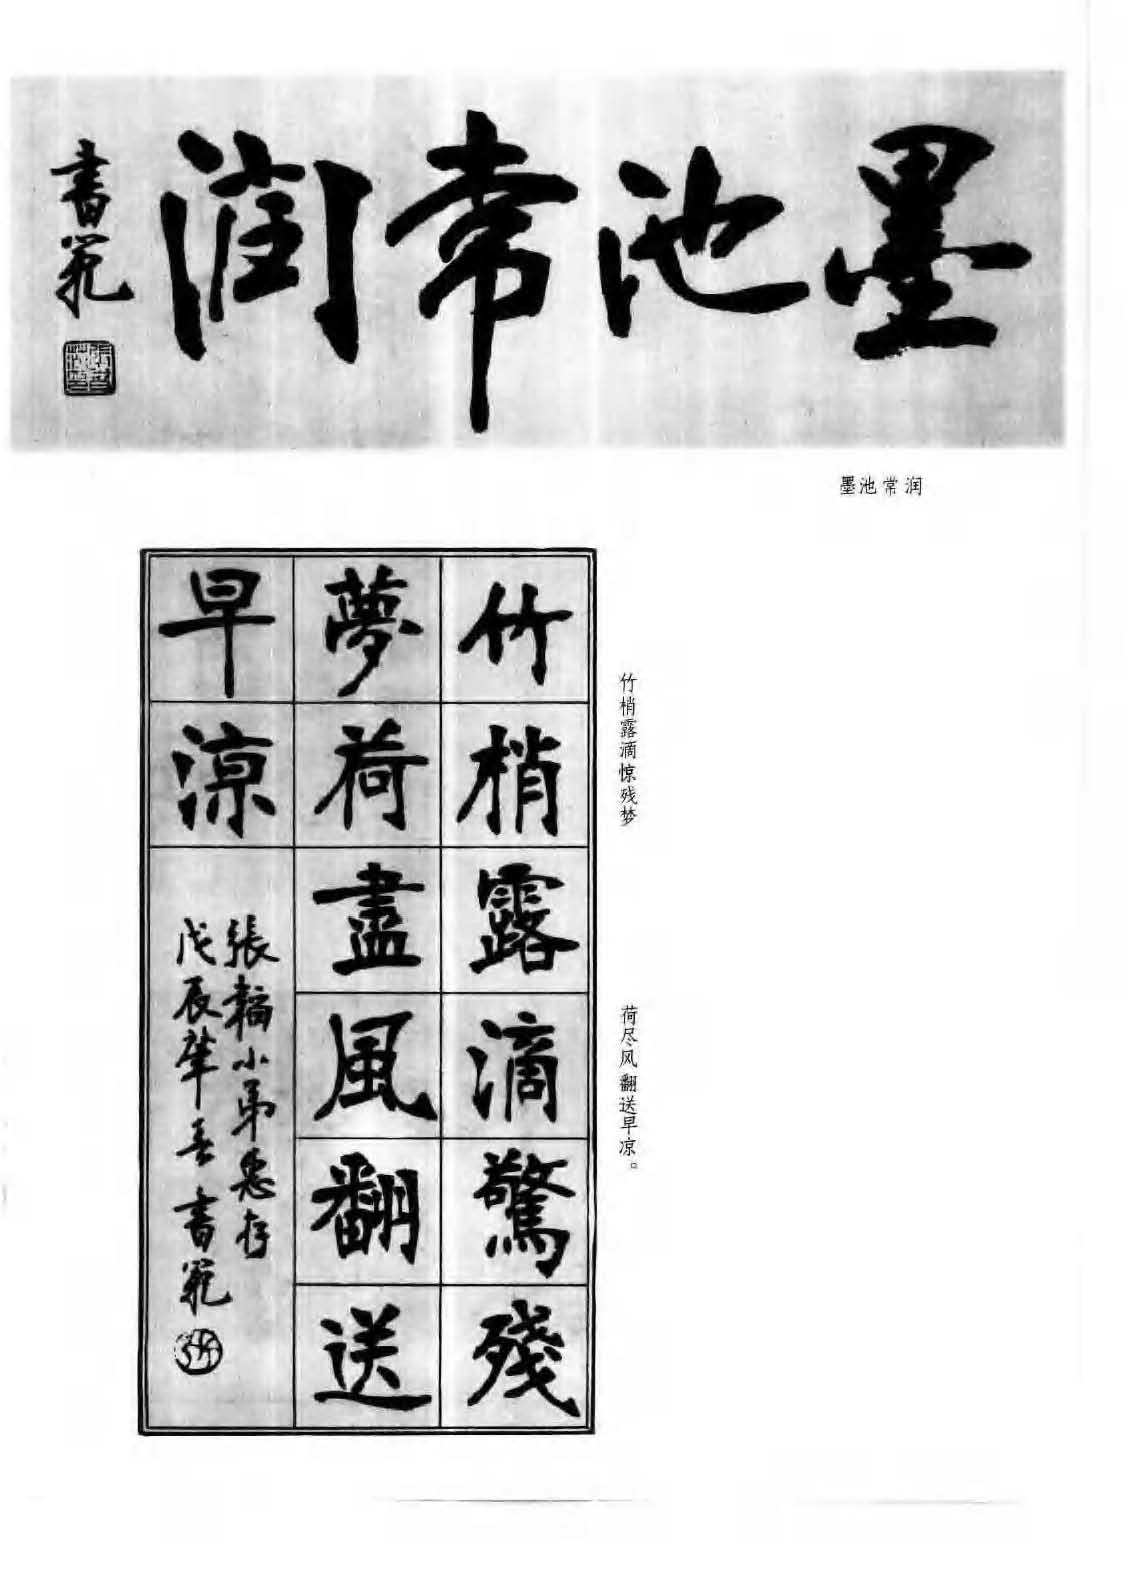 墨池常潤
書範
墨池常润
竹梢露滴驚殘
夢荷盡風翻送
早涼
張韜小弟惠存
戊辰肇春書範
竹梢露滴惊残梦
荷尽风翻送早凉。